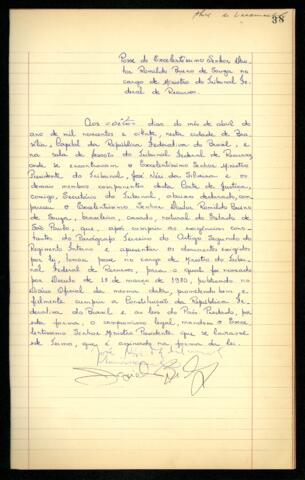 38
Posse do Excelentíssimo Senhor
Romildo Bueno de Souza no
cargo de Ministro do Tribunal Fe-
deral de Recursos.
Aos oito dias do mês de abril do
ano de mil novecentos e oitenta, nesta cidade de Bra-
sília, Capital da República Federativa do Brasil, e
na sala de sessão do Tribunal Federal de Recursos,
onde se encontravam o Excelentíssimo Senhor Ministro
Presidente do Tribunal, José Néri da Silveira e os
demais membros componentes desta Corte de Justiça,
comigo, Secretário do Tribunal, abaixo declarado, com-
pareceu o Excelentíssimo Senhor Doutor Romildo Bueno
de Souza, brasileiro, casado, natural do Estado de
São Paulo, que, após cumprir as exigências cons-
tantes do Parágrafo Terceiro do Artigo Segundo do
Regimento Interno e apresentar os documentos exigidos
por lei, tomou posse no cargo de Ministro do Tribu-
nal Federal de Recursos, para o qual foi nomeado
por Decreto de 18 de março de 1980, publicado no
Diário Oficial da mesma data, prometendo bem e
fielmente cumprir a Constituição da República Fe-
derativa do Brasil e as leis do País. Prestado, por
esta forma, o compromisso legal, mandou o Exce-
lentíssimo Senhor Ministro Presidente que se lavrasse
este Termo, que é assinado na forma da lei.